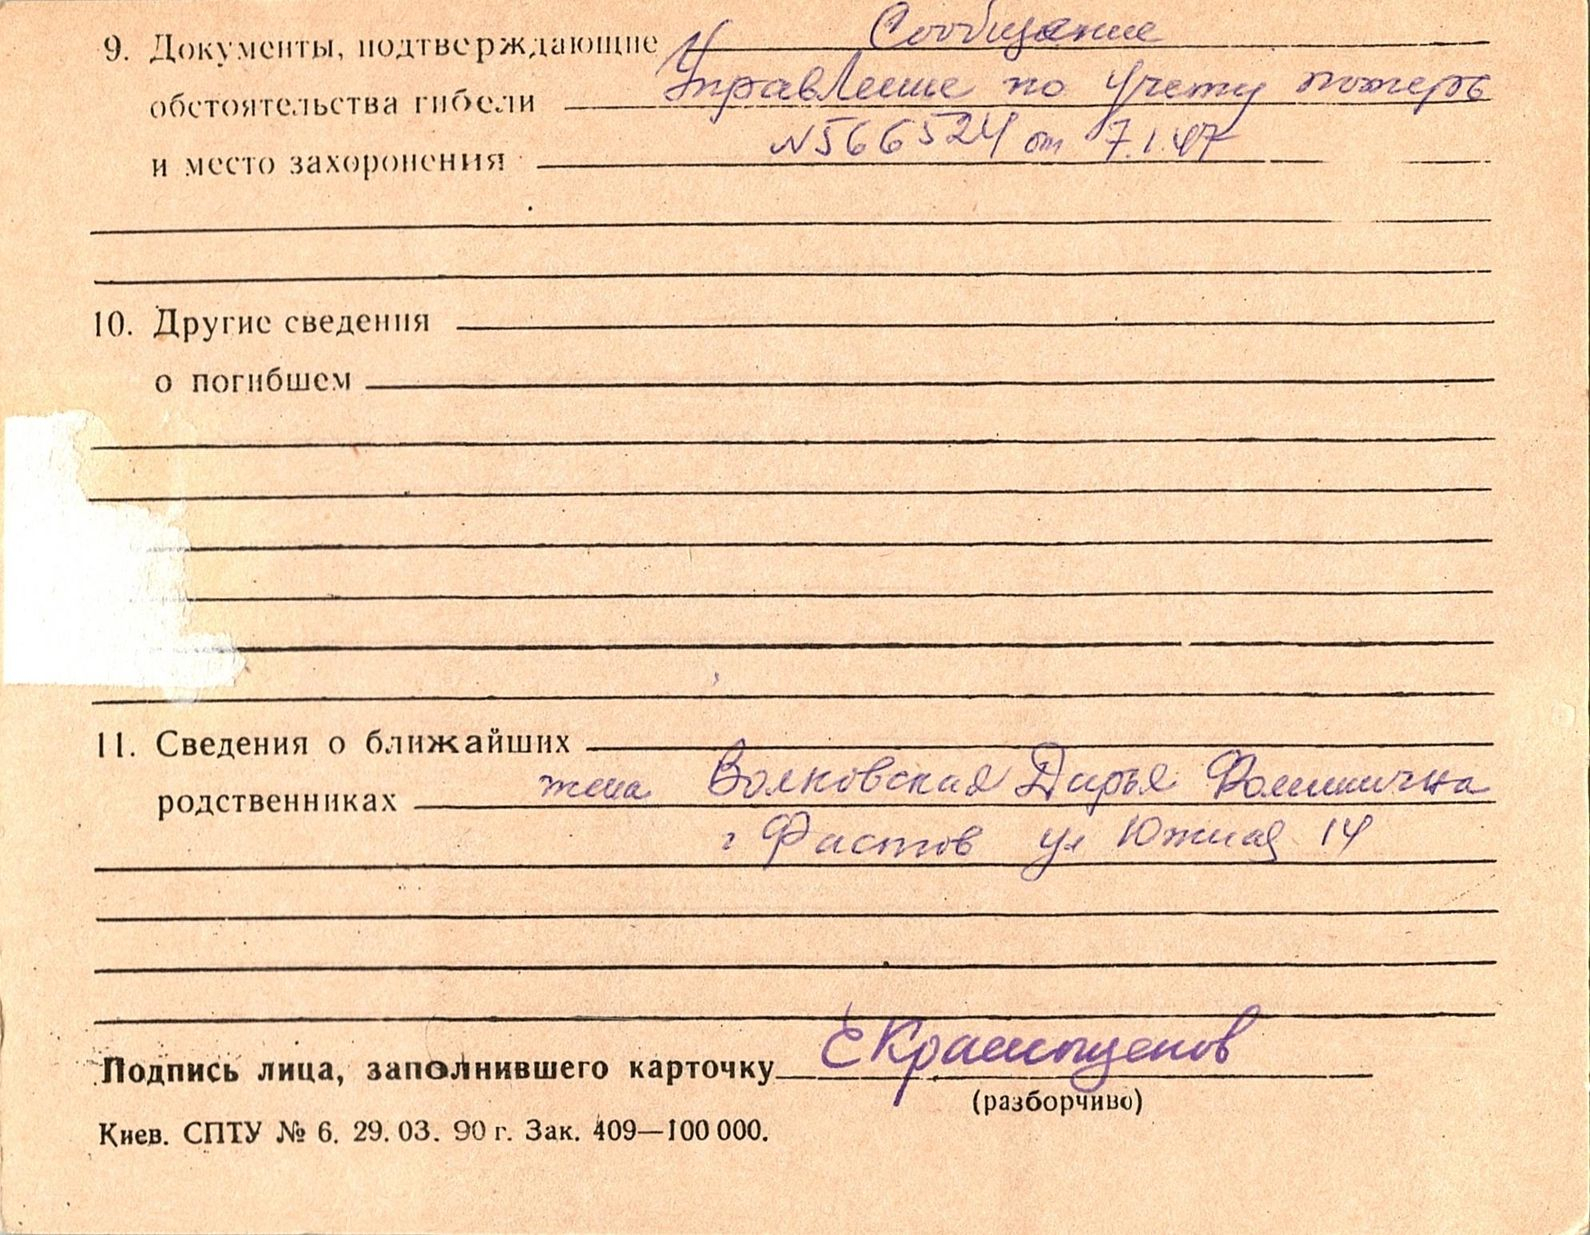 Сообщение
9. Документы, подтверждающие
Управление по учету потерь
обстоятельства гибели
№566524 от 7.1.47
и место захоронения
10. Другие сведения
о погибшем
11. Сведения о ближайших
жена Волковская Дарья Фоминична
родственниках
г Фастов ул Южная 14
Подпись лица, заполнившего карточку
(разборчиво)
Киев. СПТУ № 6. 29. 03. 90 г. Зак. 409—100 000.